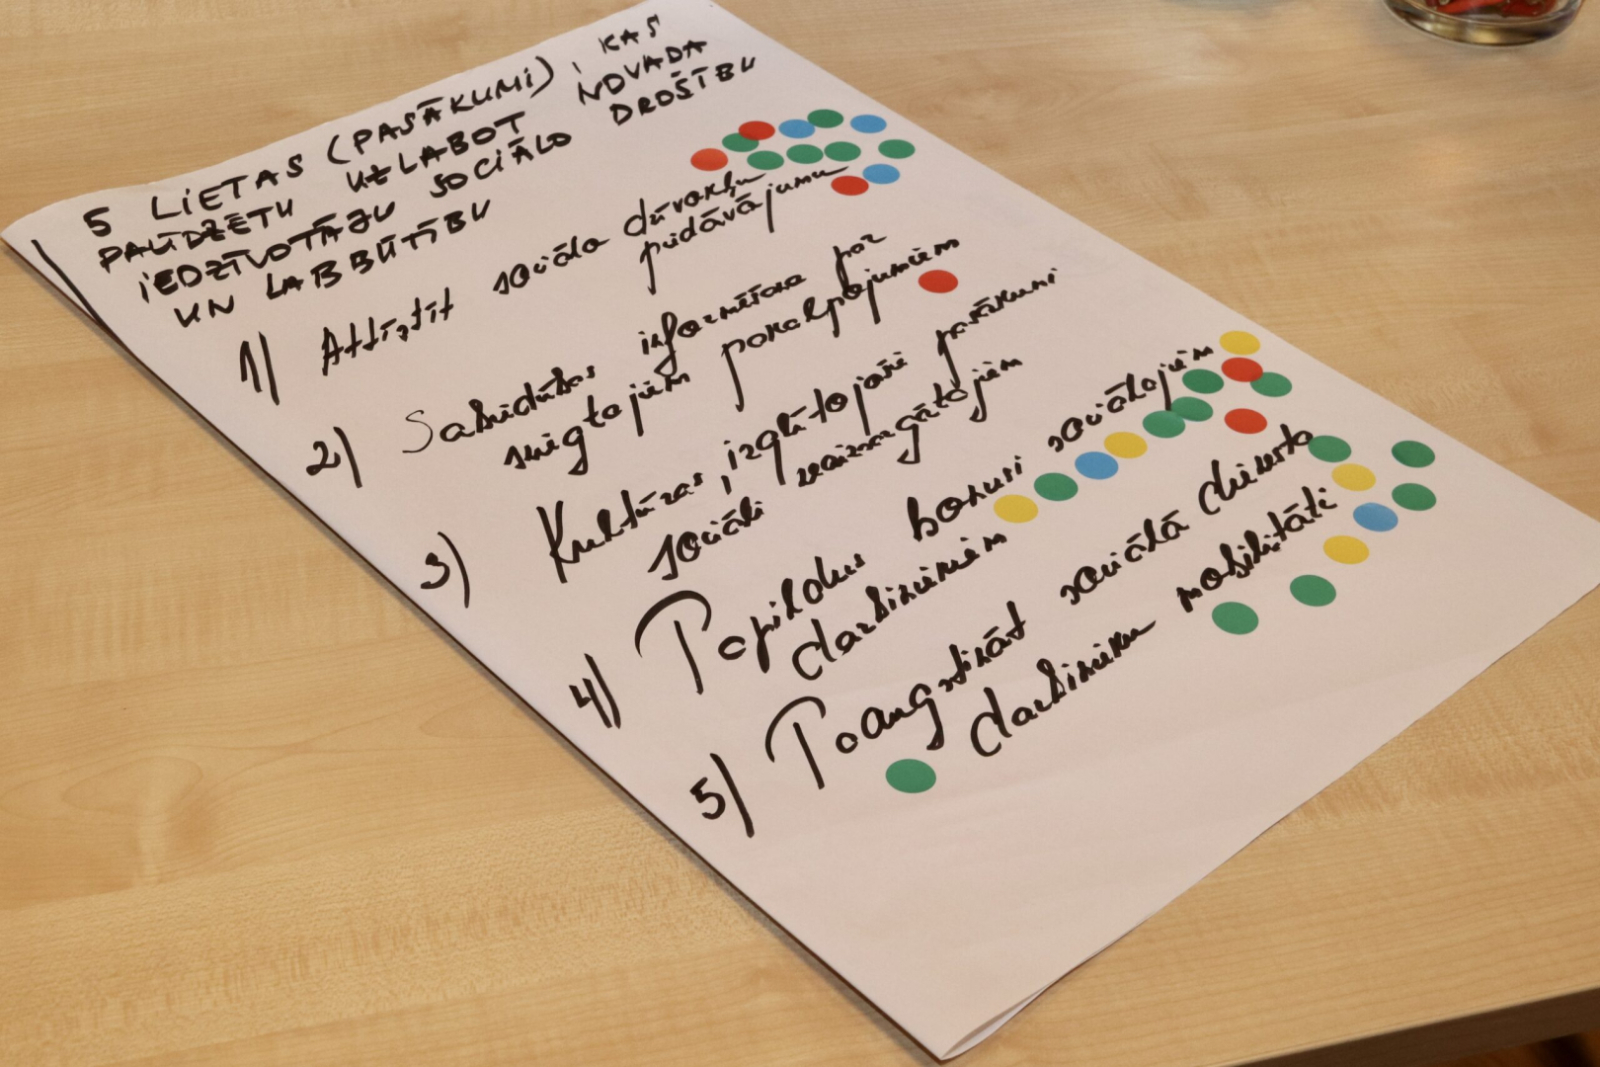 5 LIETAS (PASĀKUMI), KAS
PALĪDZĒTU UZLABOT NOVADA
IEDZĪVOTĀJU SOCIĀLO DROŠĪBU
UN LABBŪTĪBU
1) Attīstīt sociālo dzīvokļu
piedāvājumu
2) Sabiedrības informēšana par
sniegtajiem pakalpojumiem
3) Kultūras, izglītojoši pasākumi
sociāli mazaizsargātajiem
4) Papildus bonusi sociālajiem
darbiniekiem
5) Paaugstināt sociālā dienesta
darbinieku mobilitāti